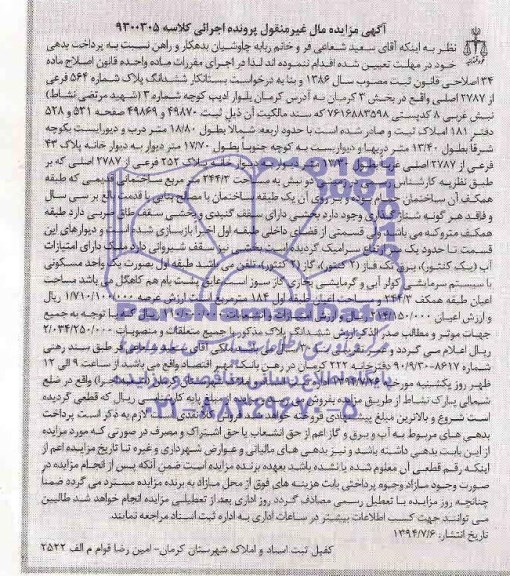 آگهی مزایده مال غیرمنقول پرونده اجرائی کلاسه ۹۳۰۰۳۰۵
نظر به اینکه آقای سعید شعاعی فر و خانم ربابه چاوشیان بدهکار و راهن نسبت به پرداخت بدهی
خود در مهلت تعیین شده اقدام ننموده اند لذا در اجرای مقررات ماده واحده قانون اصلاح ماده
۳۴ اصلاحی قانون ثبت مصوب سال ۱۳۸۶ و بنا به درخواست بستانکار ششدانگ پلاک شماره ۵۶۴ فرعی
از ۲۷۸۷ اصلی واقع در بخش ۳ کرمان به آدرس کرمان بلوار ادیب کوچه شماره ۳ (شهید مرتضی نشاط)
نبش غربی ۸ کدپستی ۷۶۱۶۸۸۳۵۹۸ که سند مالکیت آن ذیل ثبت ۴۹۸۷۰ و ۴۹۸۶۹ صفحه ۵۳۱ و ۵۲۸
دفتر ۱۸۱ املاک ثبت و صادر شده است با حدود اربعه: شمالا بطول ۱۸/۸۰ متر درب و دیواریست بکوچه
شرقا بطول ۱۳/۴۰ متر دربها و دیواریست به کوچه جنوبا بطول ۱۷/۷۰ متر دیوار به دیوار خانه پلاک ۴۳
فرعی از ۲۷۸۷ اصلی غربا بطول دیوار خانه پلاک ۲۵۲ فرعی از ۲۷۸۷ اصلی که بر
طبق نظریه کارشناس دو نبش به مساحت ۲۴۴/۳ متر مربع ساختمانی قدیمی که طبقه
همکف آن ساختمان و بر روی آن یک طبقه ساختمان با مصالح بنایی با قدمت بالغ بر سی سال
و فاقد هر گونه شناژ گذاری وجود دارد بخشی دارای سقف گنبدی و بخشی سقف طاق ضربی دارد طبقه
همکف متروکه می باشد ولی قسمتی از فضای داخلی طبقه اول اخیرا بازسازی شده است و دیوارهای این
قسمت تا حدود یک متر ارتفاع سرامیک گردیده است بخشی نیز سقف شیروانی دارد ملک دارای امتیازات
آب (یک کنتور)، برق تک فاز (۲ کنتور)، گاز (۲ کنتور)، تلفن می باشد طبقه اول بصورت یک واحد مسکونی
با سیستم سرمایشی کولر آبی و گرمایشی بخاری گاز سوز است عایق پشت بام هم کاهگل می باشد مساحت
اعیان طبقه همکف ۲۴۴/۳ و مساحت اعیان طبقه اول ۱۸۴ مترمربع است ارزش عرصه ۱/۷۱۰/۱۰۰/۰۰۰ ریال
و ارزش اعیان با توجه به جمیع
جهات موثر و مطالب صدرالذکر ارزش ششدانگ پلاک مذکور با جمیع متعلقات و منصوبات ۲/۰۳۴/۲۵۰/۰۰۰
ریال اعلام می گردد و عمر تقریبی بنا ۳۰ سال می باشد ملکی آقای سعید شعاعی فر طبق سند رهنی
شماره ۸۶۱۷-۹۰/۹/۳۰ دفترخانه ۲۲۲ کرمان در رهن بانک اقتصاد واقع می باشد از ساعت ۹ الی ۱۲
ظهر روز یکشنبه مورخه واقع در ضلع
شمالی پارک نشاط از طریق مزایده بفروش می رسد مزایده از مبلغ پایه کارشناسی ریال که قطعی گردیده
است شروع و بالاترین مبلغ پیشنهادی فروخته می شود لازم به ذکر است پرداخت
بدهی های مربوط به آب و برق و گاز اعم از حق انشعاب یا حق اشتراک و مصرف در صورتی که مورد مزایده
از این بابت بدهی داشته باشد و نیز بدهی های مالیاتی و عوارض شهرداری و غیره تا تاریخ مزایده اعم از
اینکه رقم قطعی آن معلوم شده یا نشده باشد بعهده برنده مزایده است ضمن آنکه پس از انجام مزایده در
صورت وجود مازاد وجوه پرداختی بابت هزینه های فوق از محل مازاد به برنده مزایده مسترد می گردد ضمنا
چنانچه روز مزایده با تعطیل رسمی مصادف گردد روز اداری بعد از تعطیلی مزایده انجام خواهد شد طالبین
می توانند جهت کسب اطلاعات بیشتر در ساعات اداری به اداره ثبت اسناد مراجعه نمایند
تاریخ انتشار: ۱۳۹۴/۷/۶
کفیل ثبت اسناد و املاک شهرستان کرمان- امین رضا قوام م الف ۲۵۲۲
پایگاه اطلاع رسانی مناقصه و مزایده
۰۲۱-۸۸۳۴۹۶۷۰-۵